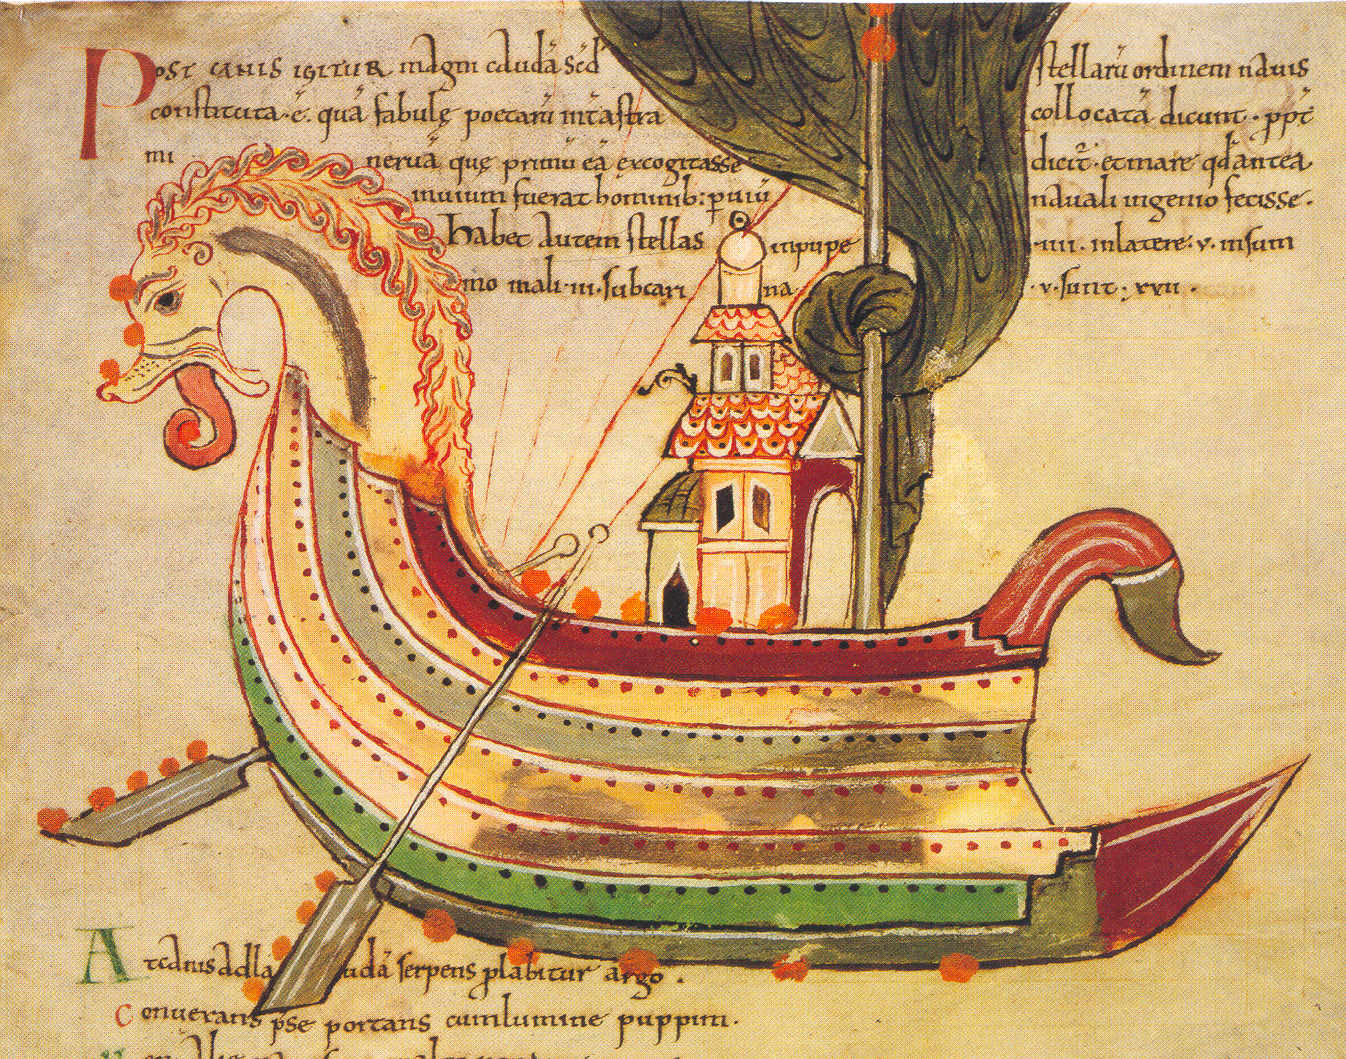 Post canis igitur magni caudā sed stellarū ordinem nauis
constituta·ē· quā fabulę poetarū int̄ astra collocatā dicunt · ppt̄
mineruā quę primū eā excogitasse dicit̄· et mare qd̄ antea
inuium fuerat hominib: puiū nauali ingenio fecisse·
Habet autem stellas inpupe ·iiii· inlatere·v· insum
mo mali·iii·subcari na· ·v·sunt·xxii·
At canis ad caudā serpens p̄labitur argo ·
Conuersans p̄ se portans cumlumine puppim·